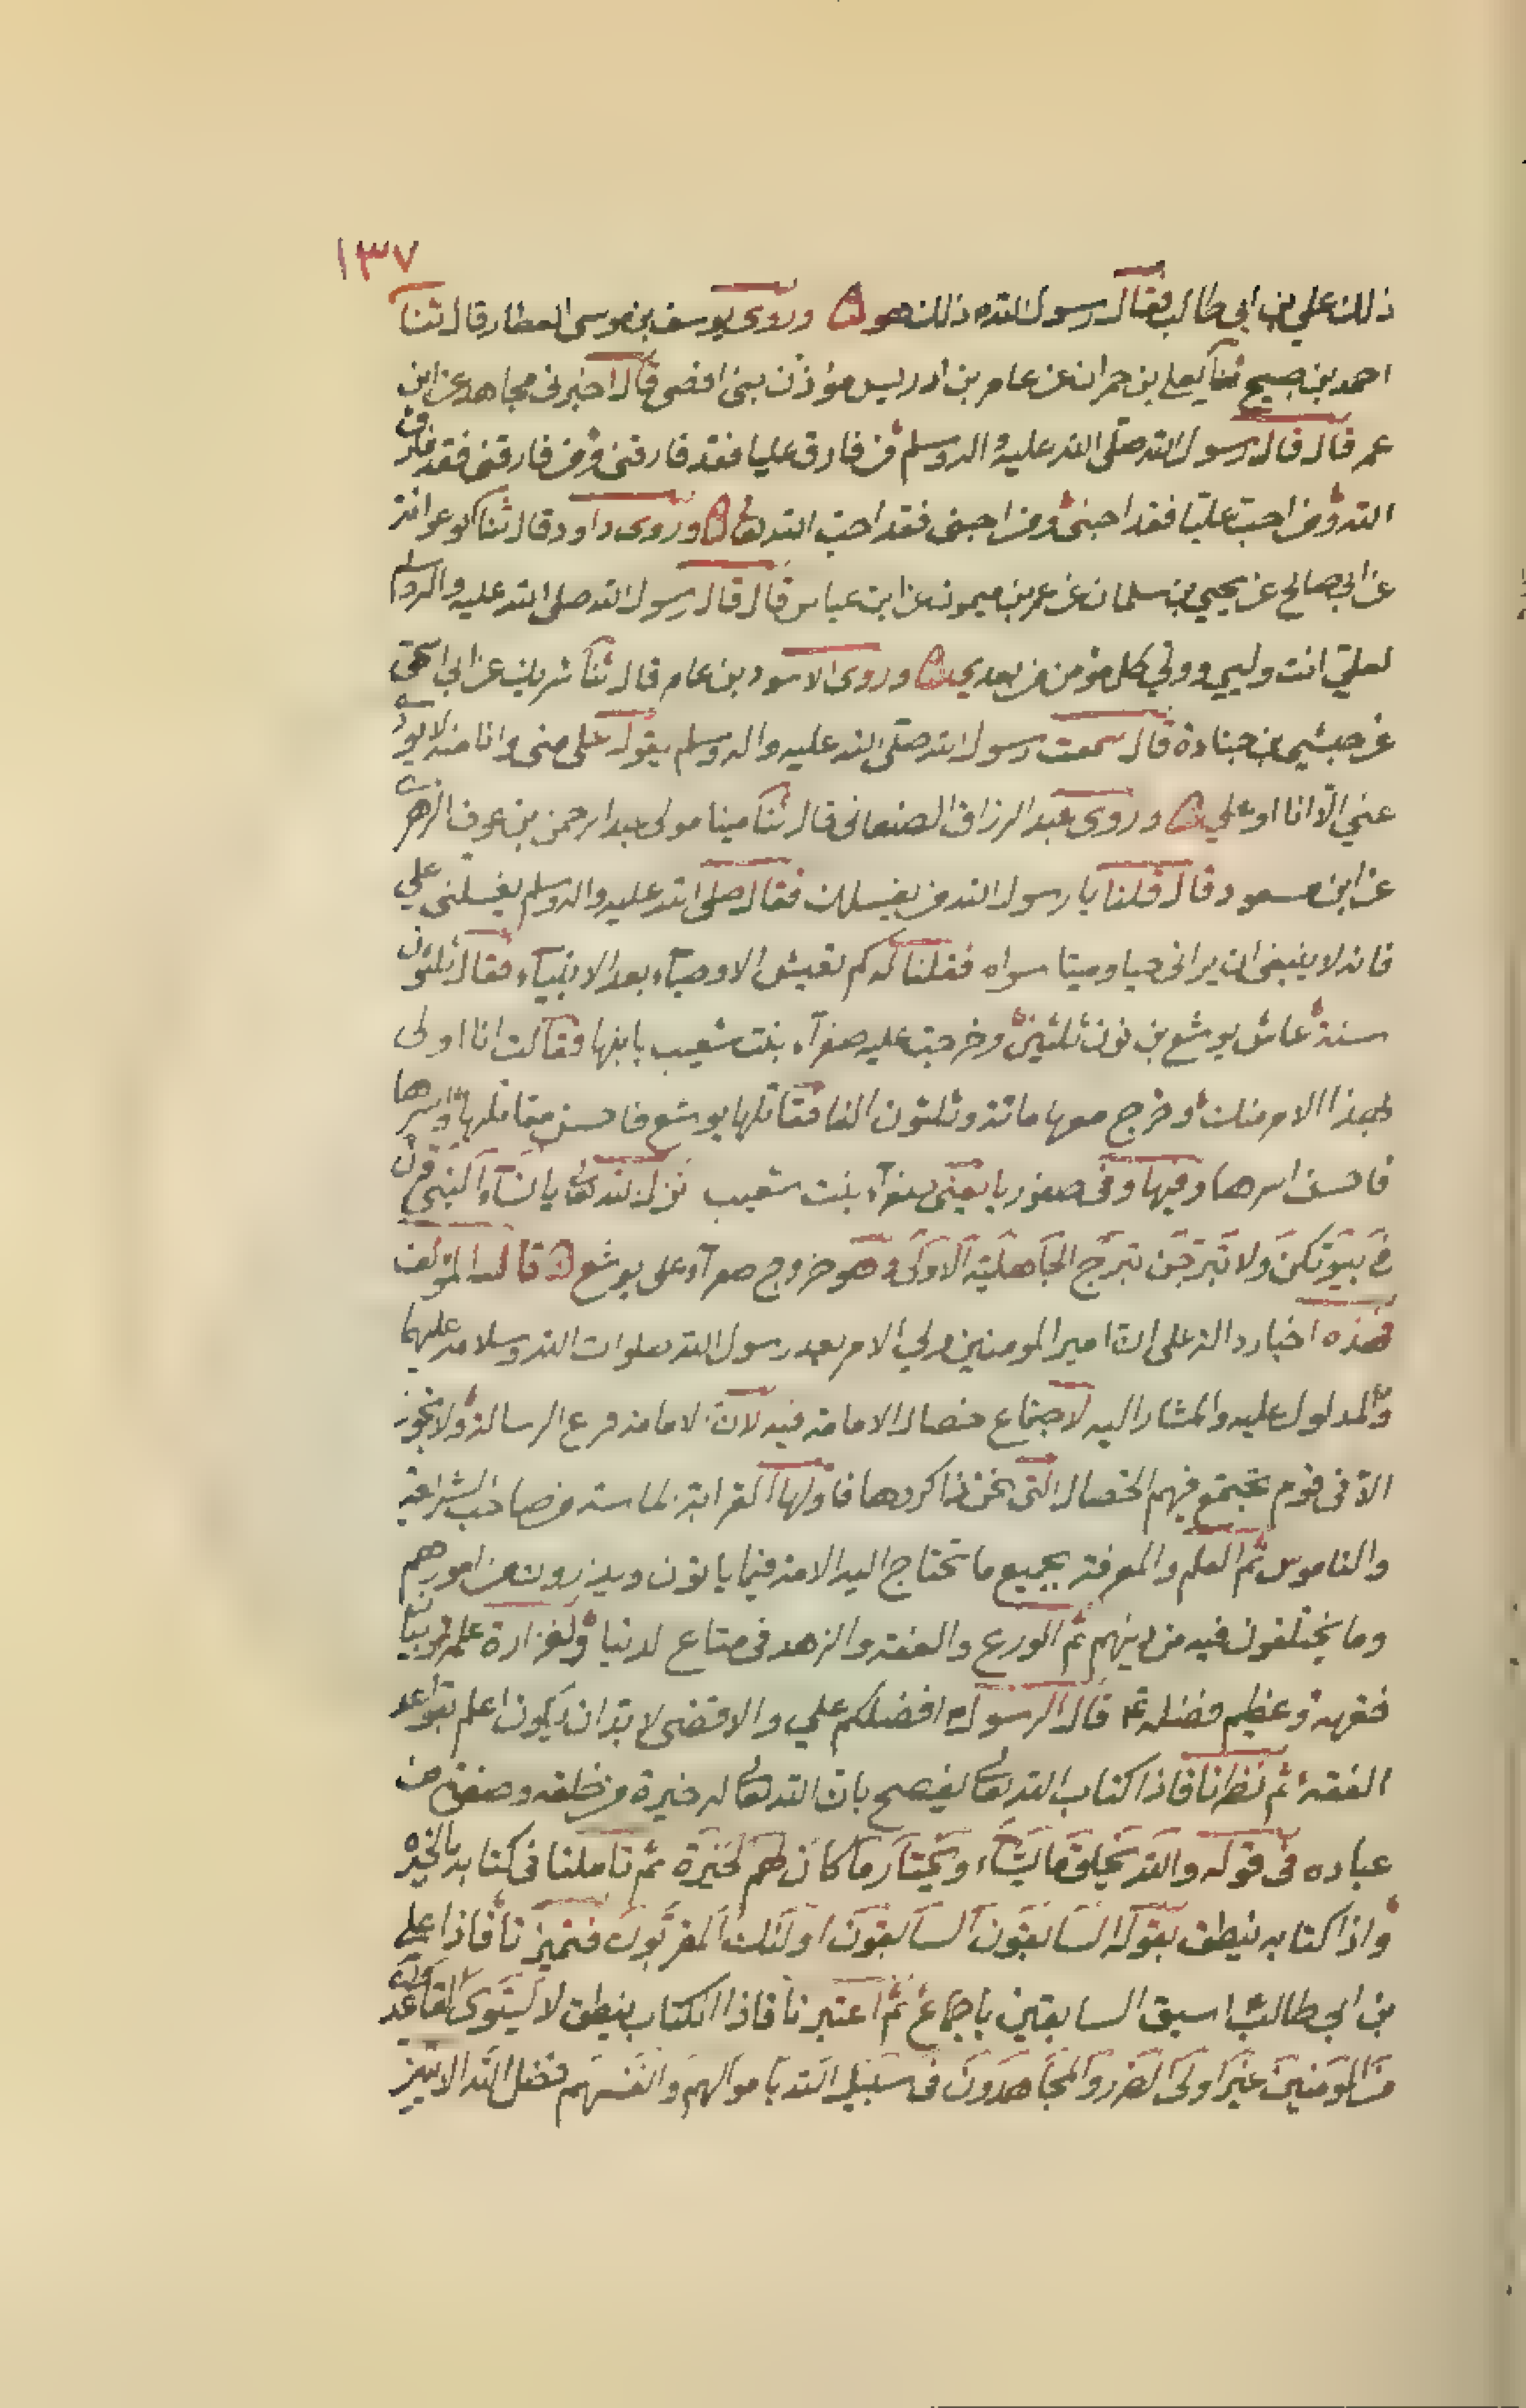 ١٣٧
ذلك علي بن ابي طالب فقال رسول الله ذلك هو وروى يوسف بن موسى العطار قال ثنا
احمد بن صبيح ثنا يعلى بن حمران عن عامر بن ادريس مؤذن بنى افصى قال اخبرنى مجاهد عن ابن
عمر قال قال رسول الله صلّى الله عليه واله وسلم من فارق عليا فقد فارقنى ومن فارقنى فقد فارق
الله ومن احبّ عليّا فقد احبنى ومن احبنى فقد احبّ الله تعالى وروى داود قال ثنا ابو عوانة
عن ابى صالح عن يحيى بن سلمان عن عمر بن ميمون عن ابن عباس قال قال رسول الله صلى الله عليه واله وسلم
لعليّ انت وليي وولي كل مؤمن من بعدي وروى الاسود بن عامر قال ثنا شريك عن ابي اسحق
عن حبشي بن جنادة قال سمعت رسول الله صلّى الله عليه واله وسلم يقول على منى وانا منه لا يودّى
عني الّا انا او علي وروى عبد الرزاق الصنعانى قال ثنا مينا مولى عبد الرحمن بن عوف الزهرى
عن ابن مسعود قال قلنا يا رسول الله من يغسلك فقال صلّى الله عليه واله وسلم يغسلنى علي
فانه لا ينبغى ان يرانى حيا وميتا سواه فقلنا له كم تعيش الاوصيآء بعد الانبيآء فقال ثلثون
سنة عاش يوشع بن نون ثلثين وخرجت عليه صفرآء بنت شعيب بابنها فقالت انا اولى
بهذا الامر منك وخرج معها مائة وثلثون الفا فقاتلها يوشع فاحسن مقاتلها واسرها
فاحسن اسرها وفيها وفى صفوريا يعنى صفرآء بنت شعيب نزل الله تعالى يا نساء النبى وقرن
فى بيوتكن ولا تبرّجن تبرّج الجاهلية الاولى وهو خروج صفرآء على يوشع قال المؤلف
فهذه اخبار دالة على انّ امير المومنين ولي الامر بعد رسول الله صلوات الله وسلامه عليهما
والمدلول عليه والمشار اليه لاجتماع خصال الامامة فيه لانّ الامامة فرع الرسالة ولا تجوز
الّا فى قوم تجتمع فيهم الخصال التى نحن ذاكروها فاولها القرابة الماسة من صاحب الشريعة
والناموس ثم العلم والمعرفة بجميع ما تحتاج اليه الامة فيما ياتون ويذرون من امورهم
وما يختلفون فيه من دينهم ثم الورع والعفة والزهد فى متاع الدنيا ولغزارة علمه
فقهه وعظيم فضله قال الرسول افضلكم علي والاقضى لا بدّ ان يكون اعلم بقواعد
الفقه ثم نظرنا فاذا كتاب الله تعالى يفصح بان الله تعالى له خيرة من خلقه وصفوة من
عباده فى قوله والله يخلق ما يشآء ويختار ما كان لهم الخيرة ثم تاملنا فى كتابه بالخيرة
واذا كتابه ينطق بقوله السابقون السابقون اولئك المقربون فتميزنا فاذا علي
بن ابى طالب اسبق السابقين باجماع ثم اعتبرنا فاذا الكتاب ينطق لا يستوى القاعدون
من المؤمنين غير اولى الضرر والمجاهدون فى سبيل الله باموالهم وانفسهم فضل الله الايتين